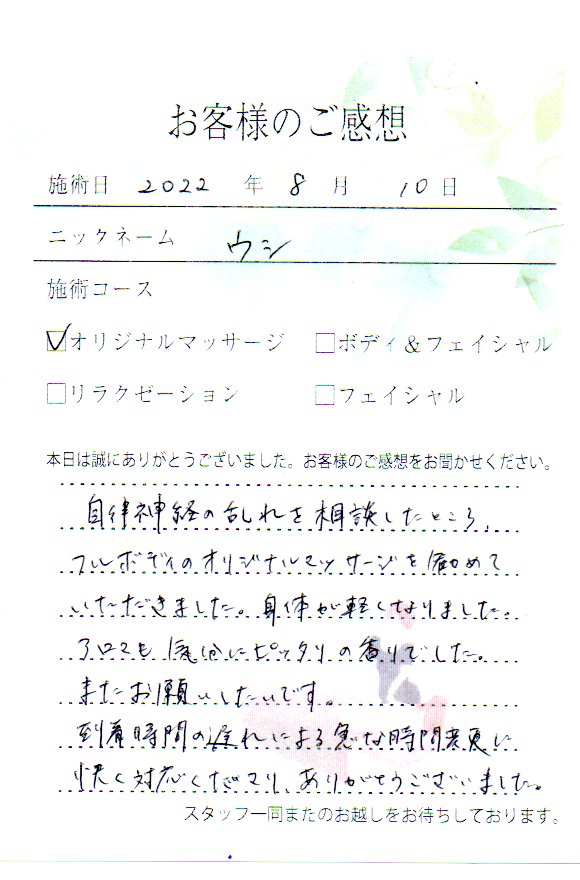 お客様のご感想
施術日 2022 年 8 月 10 日
ニックネーム ウシ
施術コース
☑オリジナルマッサージ □ボディ&フェイシャル
□リラクゼーション □フェイシャル
本日は誠にありがとうございました。お客様のご感想をお聞かせください。
自律神経の乱れを相談したところ、
フルボディのオリジナルマッサージを勧めて
いただきました。身体が軽くなりました。
アロマも気分にピッタリの香りでした。
またお願いしたいです。
到着時間の遅れによる急な時間変更に
快く対応くださり、ありがとうございました。
スタッフ一同またのお越しをお待ちしております。